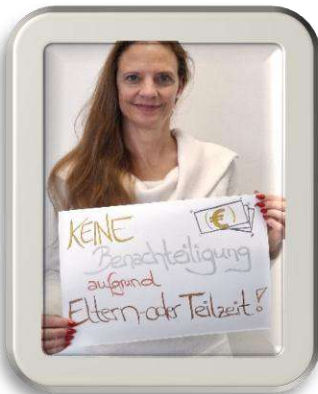 KEINE
€
Benachteiligung
aufgrund
Eltern-oder Teilzeit!